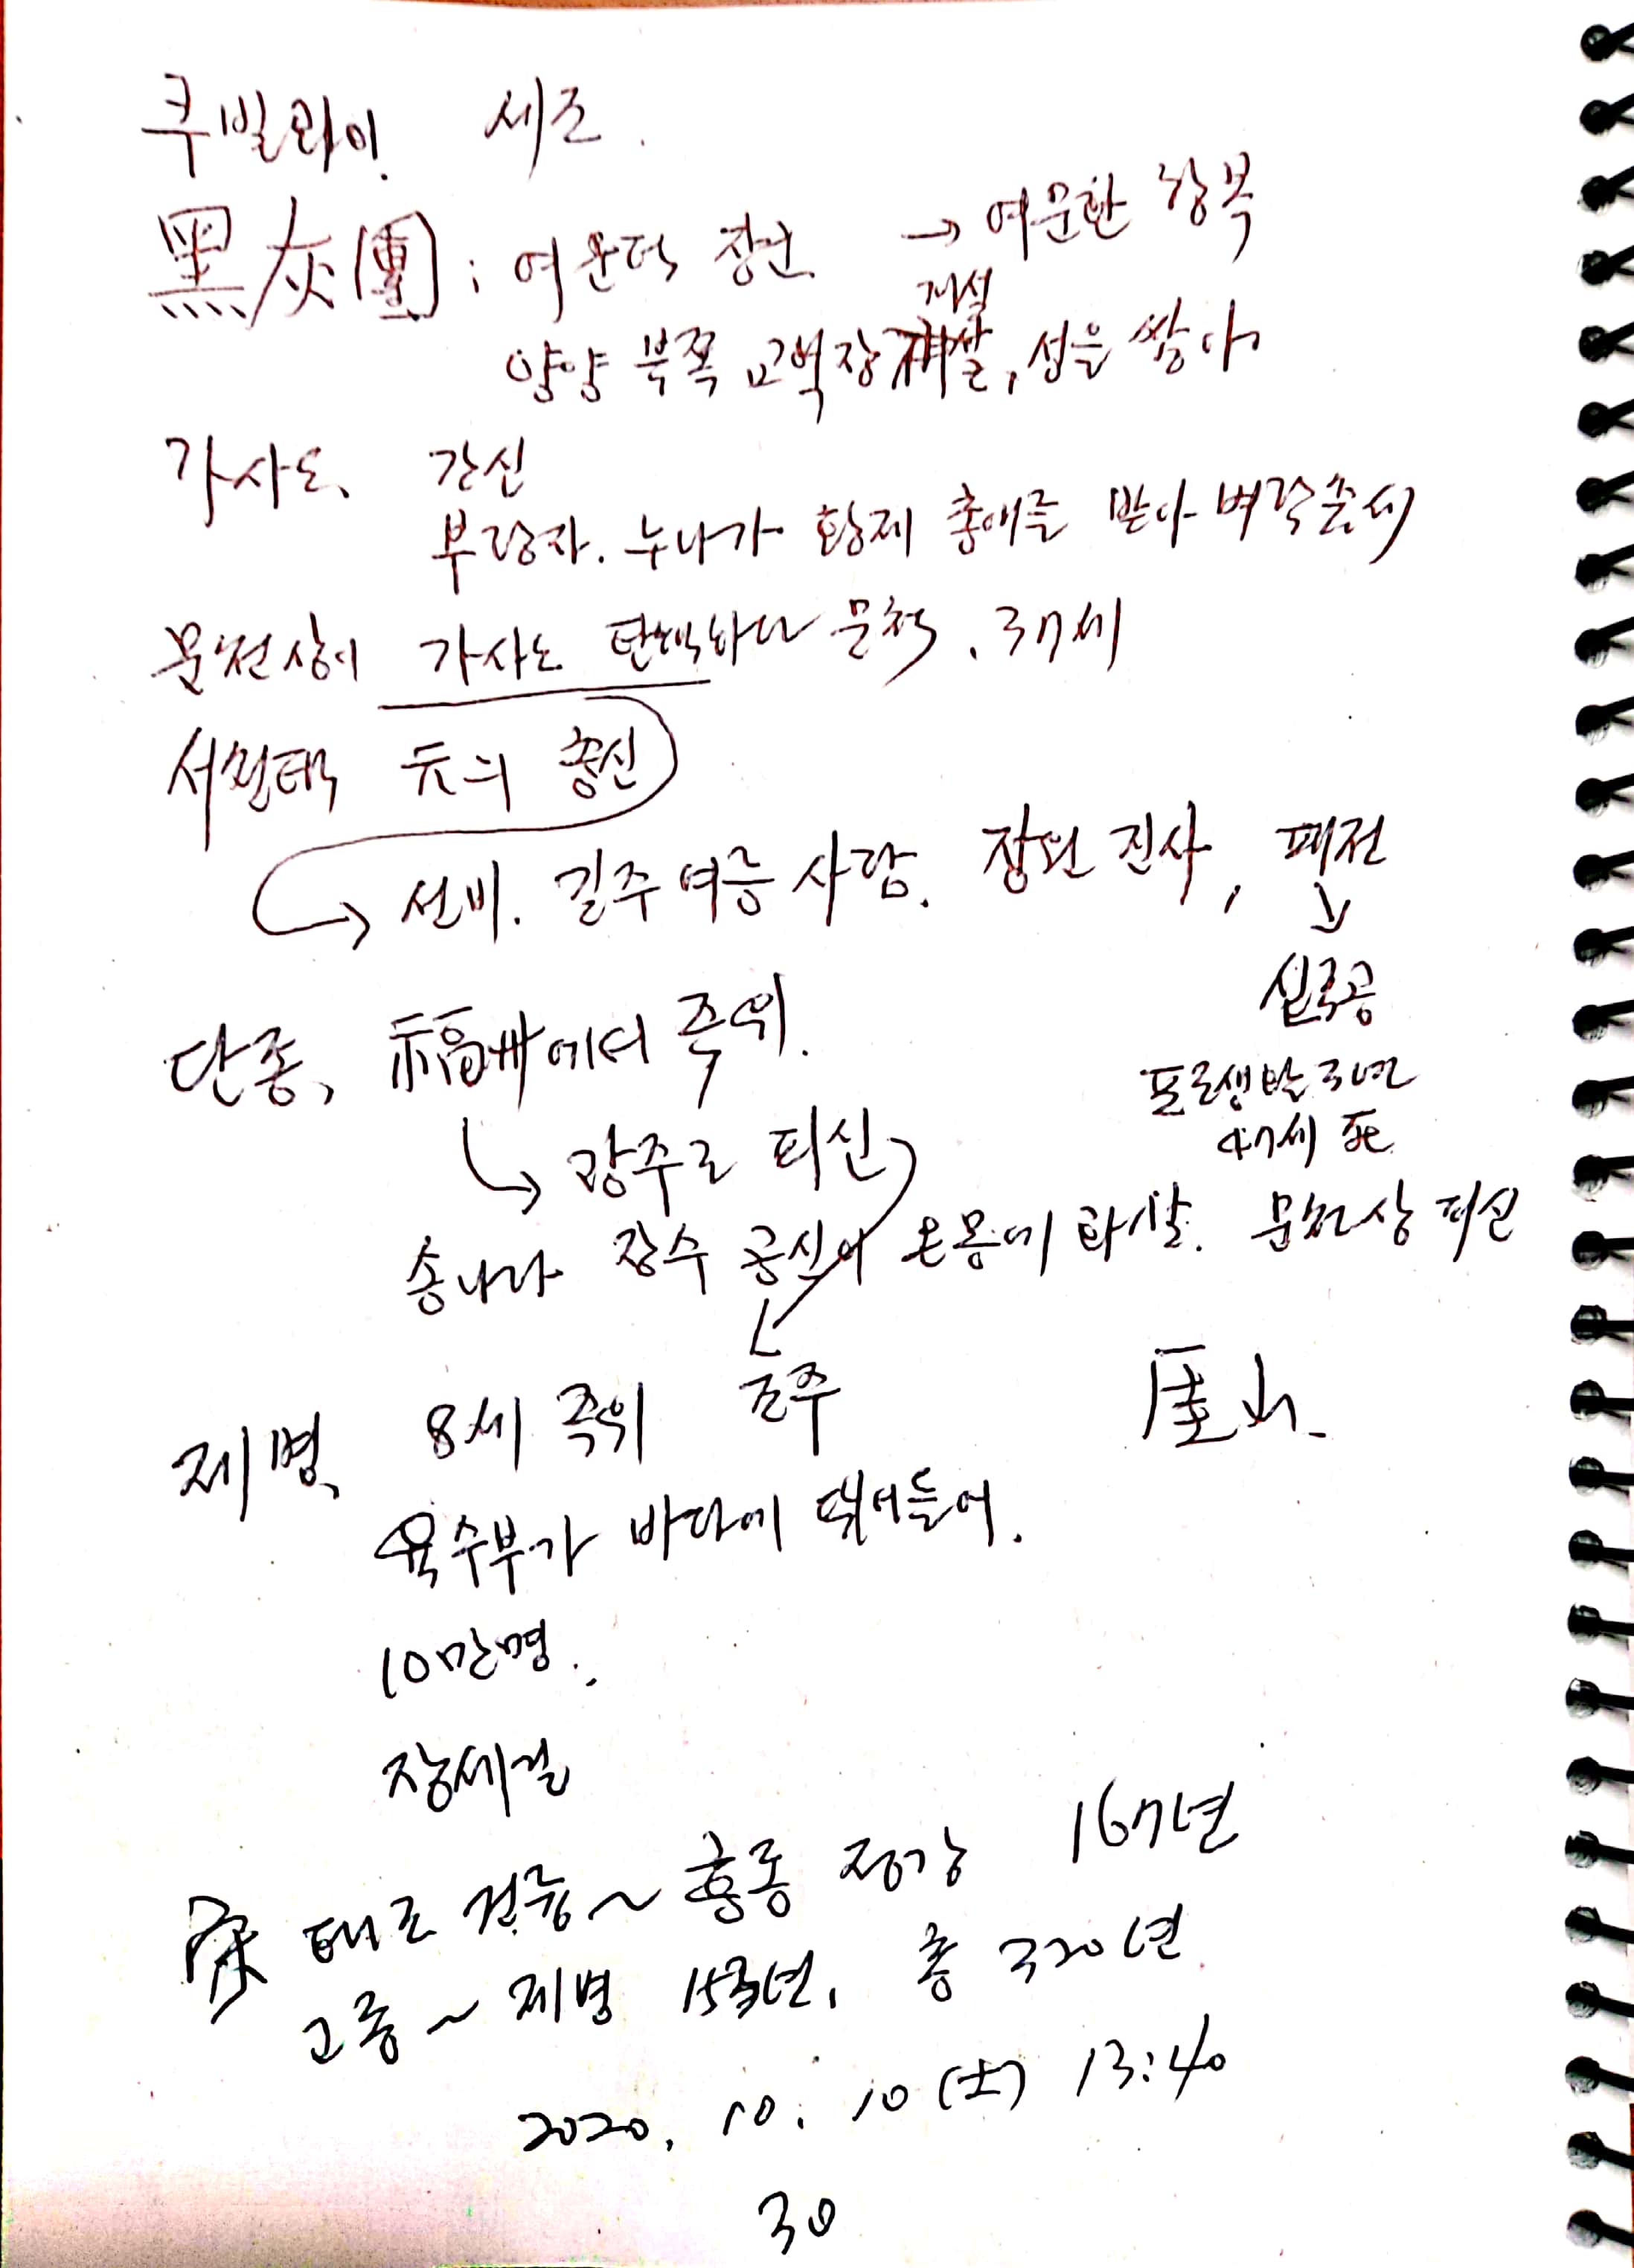 쿠빌라이. 세조.
黑灰團 : 여문덕 장군 → 여문환 항복
개설
양양 북쪽 교역장 , 성을 쌓아
가사도, 간신
부랑자. 누나가 황제 총애를 받아 벼락출세
문천상이 가사도 탄핵하다 문책. 37세
서천택 元의 충신
→ 선비. 길주 여릉 사람. 장원 진사, 패전
↓
신국공
포로생활 3년
47세 死
단종, 福州에서 즉위.
→ 광주로 피신
송나라 장수 공신이 온몸에 화살. 문천상 피신
제병, 8세 즉위 조주
厓山
육수부가 바다에 뛰어들어.
10만명.
장세걸
宋 태조 건륭 ~ 흠종 정강 167년
고종 ~ 제병 153년, 총 320년
2020. 10. 10 (土) 13:40
30